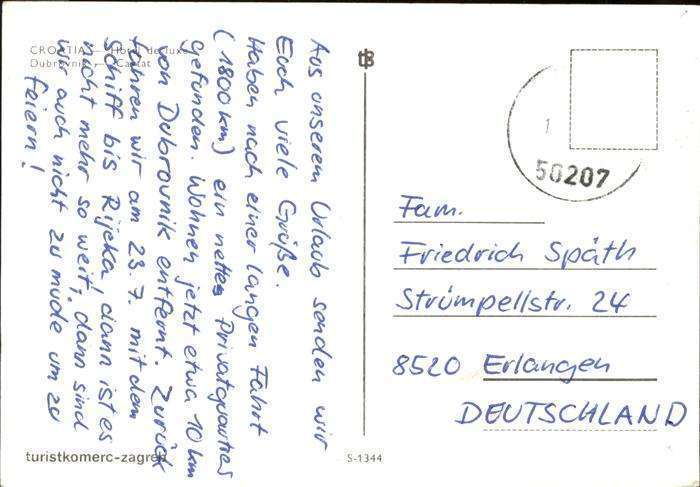 CROATIA — Hotel de luxe
Dubrovnik — Cavtat
Aus unserem Urlaub senden wir
Euch viele Grüße.
Haben nach einer langen Fahrt
(1800 km) ein nettes Privatquartier
gefunden. Wohnen jetzt etwa 10 km
von Dubrovnik entfernt. Zurück
fahren wir am 23.7. mit dem
Schiff bis Rijeka, dann ist es
nicht mehr so weit, dann sind
wir auch nicht zu müde um zu
feiern!
turistkomerc-zagreb
S-1344
tz
1
50207
Fam.
Friedrich Späth
Strümpellstr. 24
8520 Erlangen
DEUTSCHLAND